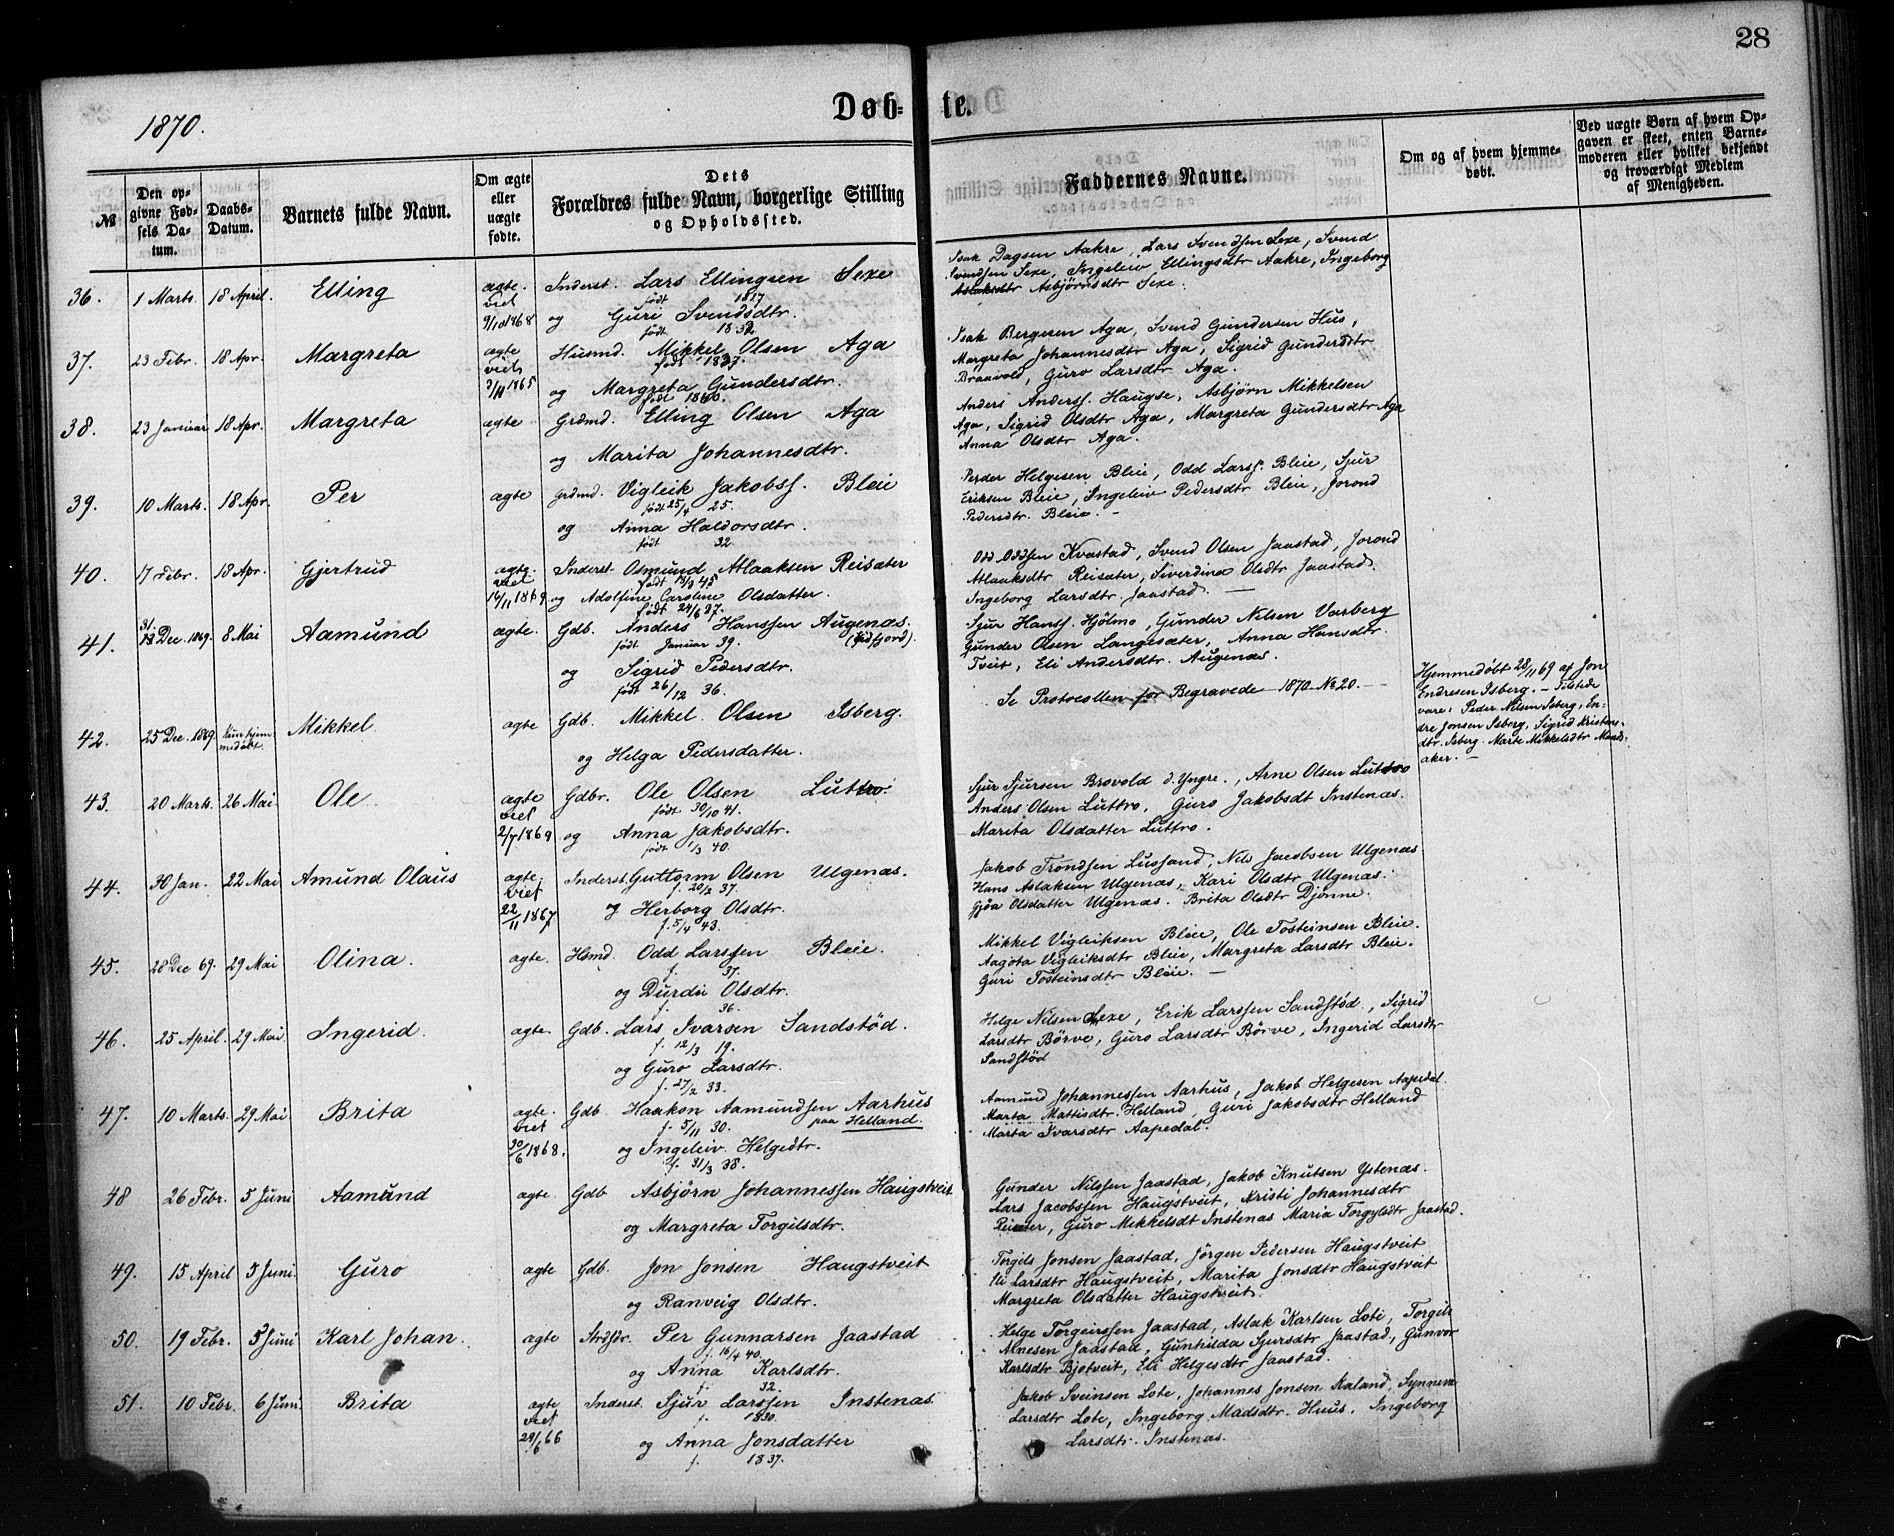 28
1870.
Døb- te.
№
Den op-
givne Fød-
sels Da-
tum.
Daabs-
Datum.
Barnets fulde Navn.
Om ægte
eller
uægte
fødte.
Dets
Forældres fulde Navn, borgerlige Stilling
og Opholdssted.
Faddernes Navne.
Om og af hvem hjemme-
døbt.
Ved uægte Børn af hvem Op-
gaven er skeet, enten Barne-
moderen eller hvilket bekjendt
og troværdigt Medlem
af Menigheden.
36. 1 Marts. 18 April. Elling ægte. Inderst. Lars Ellingsen Sexe
viet født 1817
9/10 1868 og Guri Svendsdtr.
født 1832
Isak Dagsen Aakre, Lars Svendsen Sexe, Svend
Svendsen Sexe, Ingeleiv Ellingsdtr Aakre, Ingeborg
Aslaksdtr Asbjørnsdtr Sexe.
37. 23 Febr. 18 Apr. Margreta ægte Husmd. Mikkel Olsen Aga
viet født 1837.
1865 og Margreta Gundersdtr.
født 1840.
Isak Bergesen Aga, Svend Gundersen Hus,
Margreta Johannesdtr Aga, Sigrid Gundersdtr
Braavold, Guro Larsdtr Aga.
38. 23 Januar 18 Apr. Margreta ægte Grdmd. Elling Olsen Aga
og Marita Johannesdtr.
Anders Anderss. Haugse, Asbjørn Mikkelsen
Aga, Sigrid Olsdtr Aga, Margreta Gundersdtr Aga
Anna Olsdtr Aga.
39. 10 Marts. 18 Apr. Per ægte Grdmd. Vigleik Jakobss. Bleie
født 25/4 25.
og Anna Haldorsdtr.
født 32.
Peder Helgesen Bleie, Odd Larss. Bleie, Sjur
Eriksen Bleie, Ingeleiv Pedersdtr Bleie, Jorond
Pedersdtr. Bleie.
40. 17 Febr. 18 Apr. Gjertrud ægte. Inderst. Osmund Atlaaksen Reisæter
viet født 13/3 45
14/11 1869 og Adolfine Caroline Olsdatter.
født 24/6 37.
Odd Oddsen Kvastad, Svend Olsen Jaastad, Jorond
Atlaaksdtr Reisæter, Siverdina Olsdtr Jaastad.
Ingeborg Larsdtr Jaastad.
41. 31.
Dec. 1869. 8 Mai Aamund ægte. Gdb. Anders Hanssen Augenæs.
født Januar 39. (Eidfjord).
og Sigrid Pedersdtr.
født 26/12 36.
Sjur Hanss. Hjølmo, Gunder Nilsen Varberg
Gunder Olsen Langesæter, Anna Hansdtr.
Tveit, Eli Andersdtr. Augenæs.
42. 25 Dec. 1869. Kun hjem-
medøbt. Mikkel ægte Gdb. Mikkel Olsen Isberg.
og Helga Pedersdatter.
Se Protocollen for Begravede 1870 № 20.
Hjemmedøbt 28/11 69 af Jon
Endresen Isberg. — Tilstede
vare: Peder Nilsen Isberg, En-
dre Jonsen Isberg, Sigrid Kristens-
dtr. Isberg. Marte Mikkelsdtr Maads-
aker.
43. 20 Marts. 26 Mai Ole ægte Gdbr. Ole Olsen Luttro.
viet født 30/10 41.
2/7 1869 og Anna Jakobsdtr.
født 1/3 40.
Sjur Sjursen Brovold d. Yngre., Arne Olsen Luttro
Anders Olsen Luttro, Guro Jakobsdt Instenæs.
Marita Olsdatter Luttro.
44. 30 Jan. 22 Mai Amund Olaus ægte. Inderst. Guttorm Olsen Ulgenæs.
viet f. 20/2 37.
22/11 1867 og Herborg Olsdtr.
f. 5/4 43.
Jakob Trondsen Lussand, Nils Jacobsen Ulgenæs
Hans Aslaksen Ulgenæs, Kari Olsdtr Ulgenæs.
Gjøa Olsdatter Ulgenæs. Brita Olsdtr Djønne.
45. 28 Dec 69. 29 Mai Olina. ægte. Hsmd. Odd Larssen Bleie.
f. 37.
og Durdei Olsdtr.
f. 36.
Mikkel Vigleiksen Bleie, Ole Tosteinsen Bleie.
Aagota Vigleiksdtr Bleie, Margreta Larsdtr Bleie.
Guri Tosteinsdtr Bleie.
46. 25 April. 29 Mai. Ingerid. ægte. Gdb. Lars Ivarsen Sandstød.
f. 12/3 19.
og Guro Larsdtr.
f. 27/2 33.
Helge Nilsen Sexe, Erik Larssen Sandstød, Sigrid
Larsdtr Børve, Guro Larsdtr Børve, Ingerid Larsdtr
Sandstød
47. 10 Marts. 29 Mai Brita ægte. Gdb. Haakon Aamundsen Aarhus
viet f. 5/11 30. paa Helland.
30/6 1868. og Ingeleiv Helgedtr.
f. 31/3 38.
Aamund Johannessen Aarhus, Jakob Helgesen Aapedal.
Marta Mattisdtr. Helland, Guri Jakobsdtr Helland
Marta Ivarsdtr Aapedal.
48 26 Febr. 5 Juni Aamund ægte Gdb Asbjørn Johannessen Haugstveit
og Margreta Torgilsdtr.
Gunder Nilssen Jaastad, Jakob Knutsen Ystenæs.
Lars Jacobssen Haugstveit, Kristi Johannesdtr
Reisæter, Guro Mikkelsdt Instenæs Maria Torgylsdtr Jaastad.
49. 15 April 5 Juni. Guro ægte Gdb. Jon Jonsen Haugstveit
og Ranveig Olsdtr.
Torgils Jonsen Jaastad, Jørgen Pedersen Haugstveit
Eli Larsdtr Haugstveit, Marita Jonsdtr Haugstveit
Margreta Olsdatter Haugstveit.
50. 19 Febr. 5 Juni Karl Johan. ægte Per Gunnarsen Jaastad
f. 16/4 40.
og Anna Karlsdtr.
f. 32.
Helge Torgeirssen Jaastad, Aslak Karlsen Lote, Torgils
Arnesen Jaastad, Gunhilda Sjursdtr Jaastad, Gunvor
Karlsdtr Bjotveit, Eli Helgesdtr Jaastad.
51. 10 Febr. 6 Juni. Brita ægte Inderst. Sjur Larssen Instenæs
viet f. 1830.
29/6 66 og Anna Jonsdatter
f. 1837.
Jakob Sveinsen Lote, Johannes Jonsen Kaland, Synneve
Larsdtr Lote, Ingeborg Madsdtr. Huus, Ingeborg
Larsdtr. Instenæs.